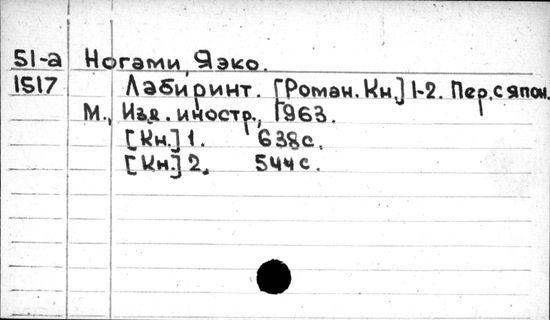 51-а Ногами, Яэко.
1517 Лабиринт. [Роман. Кн.] 1-2. Пер. с япон.
М., Изд. иностр., 1963.
[Кн.] 1. 638с.
[Кн.] 2. 544с.